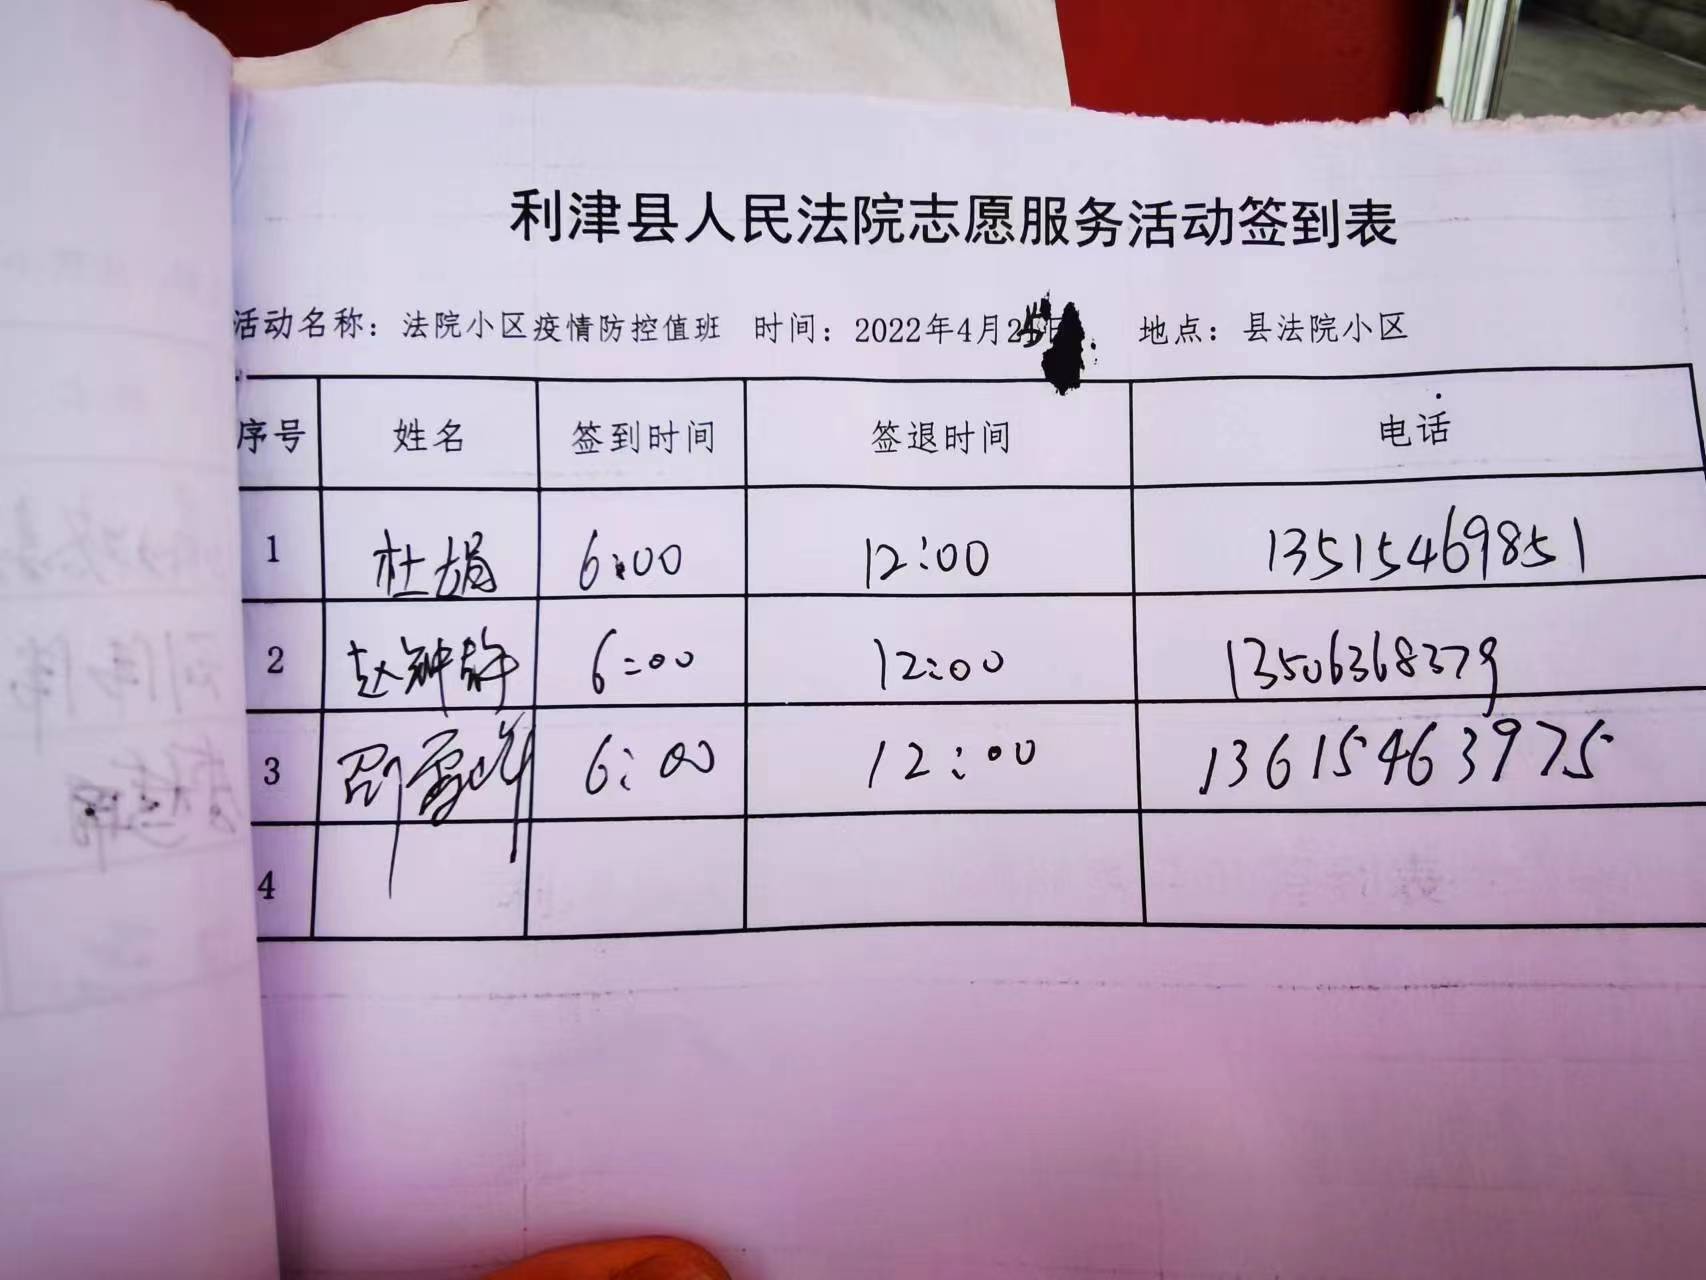 利津县人民法院志愿服务活动签到表
活动名称：法院小区疫情防控值班 时间：2022年4月25日 地点：县法院小区
序号 姓名 签到时间 签退时间 电话
1 杜娟 6:00 12:00 13515469851
2 赵 6:00 12:00 13506368379
3 邵雪峰 6:00 12:00 13615463975
4